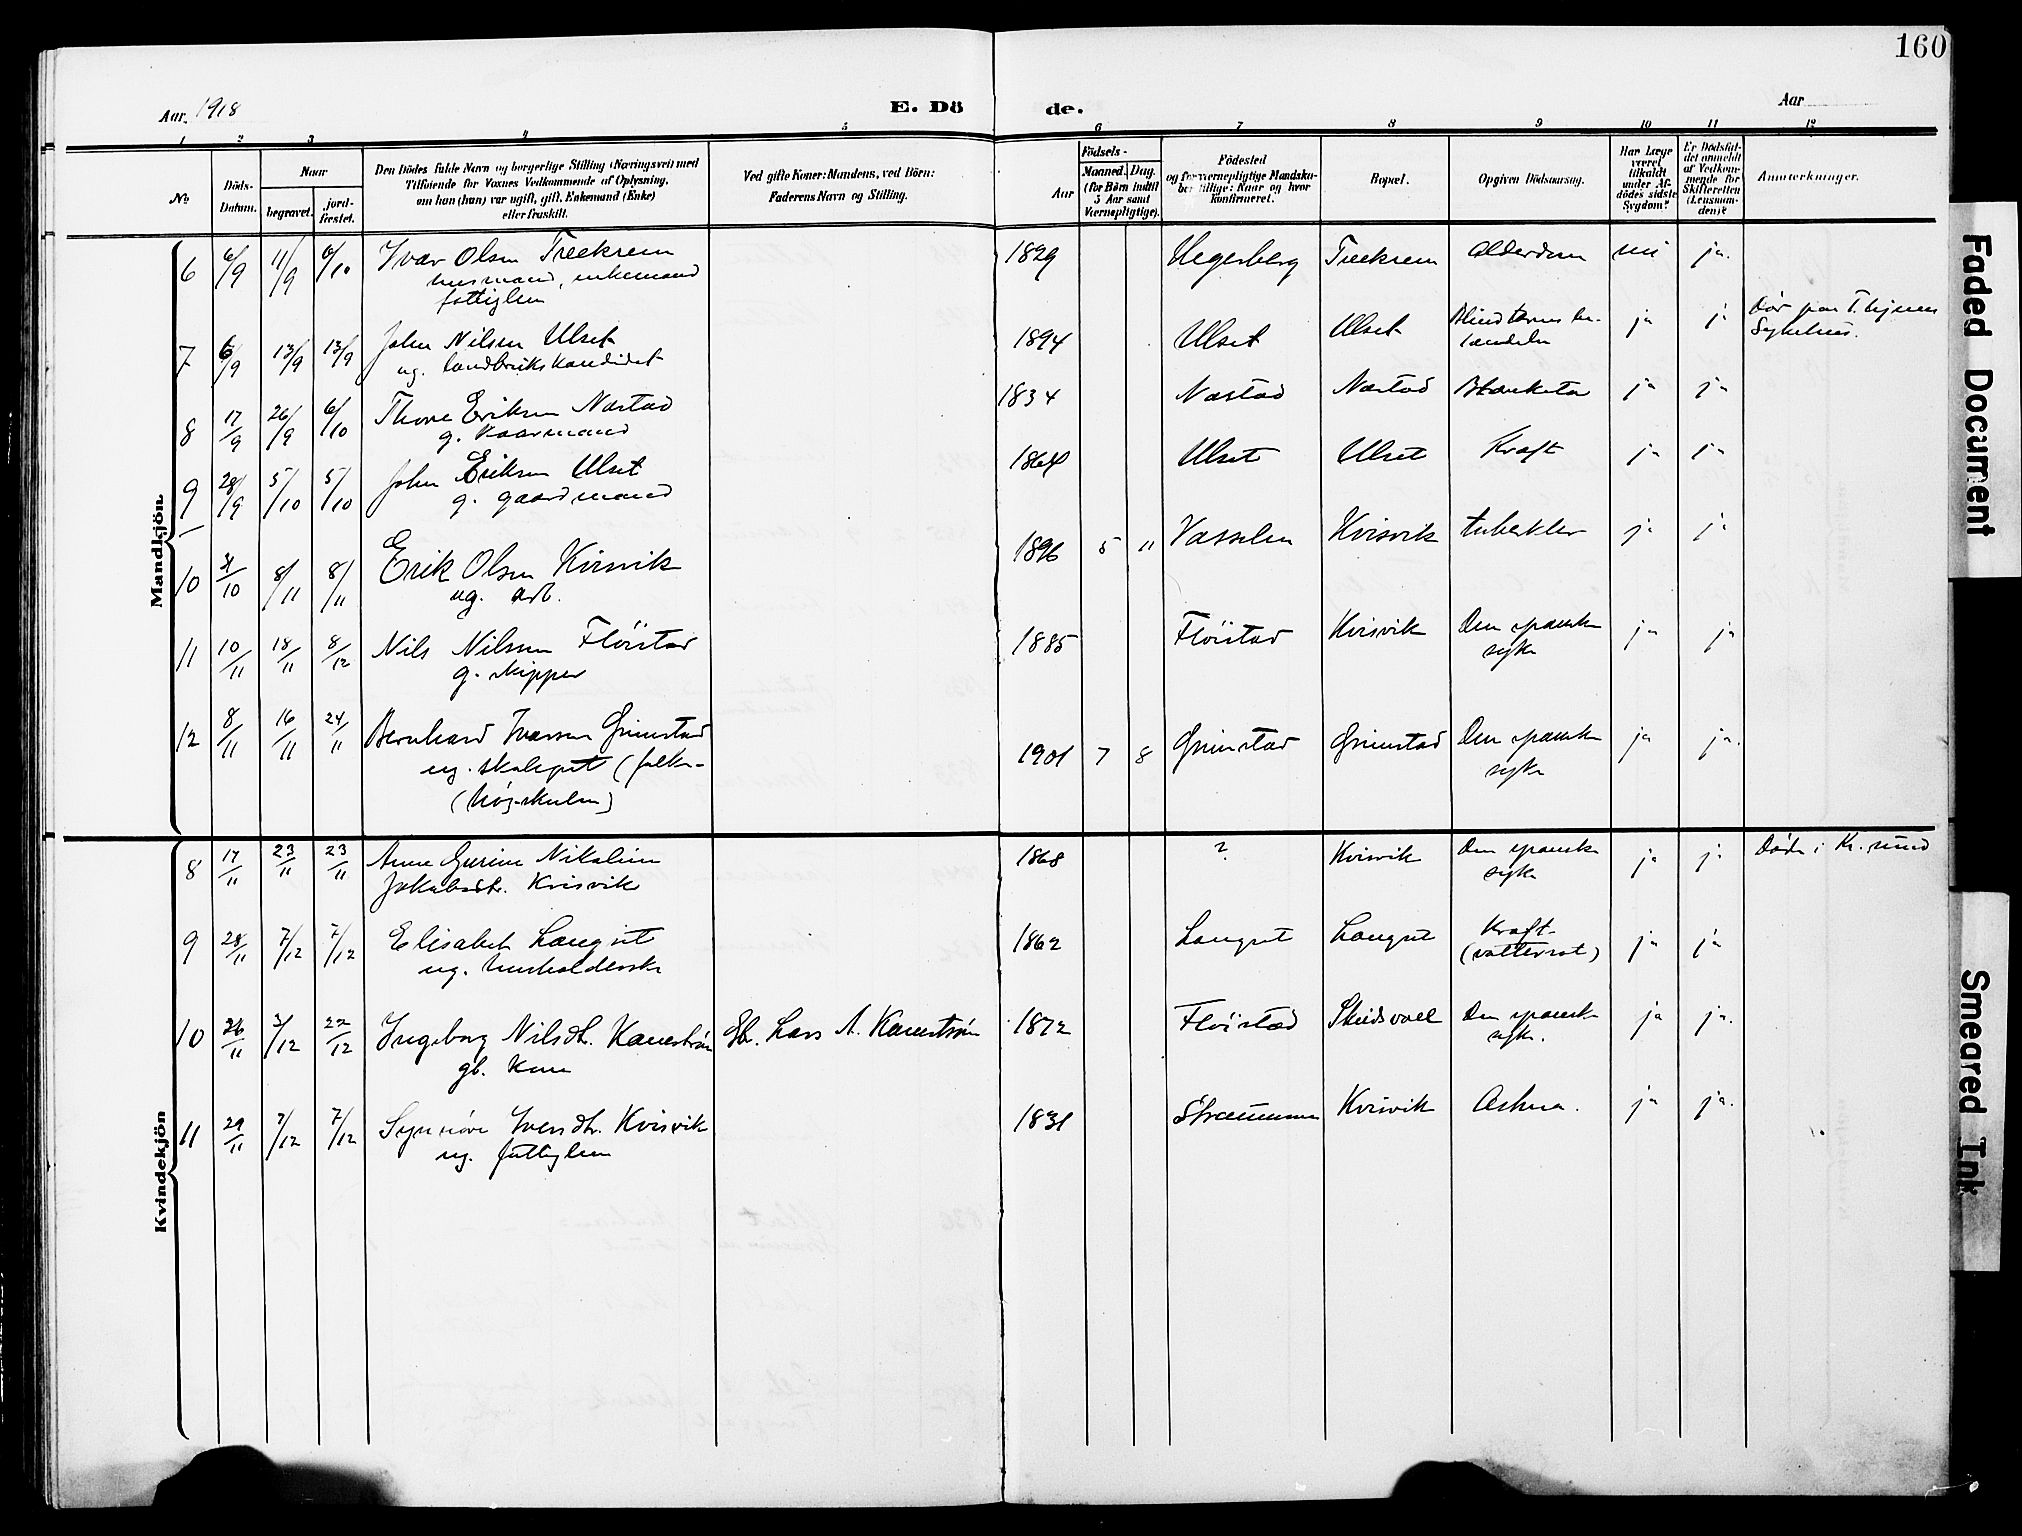 160
Aar. 1918
E. Dö
de.
Aar
1 2 3 4 5 6 7 8 9 10 11 12
No
Döds-Datum.
Naar
begravet.
jord-festet.
Den Dödes fulde Navn og borgerlige Stilling (Næringsvei) med
Tilföiende for Voxnes Vedkommende af Oplysning,
om han (hun) var ugift, gift, Enkemand (Enke)
eller fraskilt.
Ved gifte Koner: Mandens, ved Börn:
Faderens Navn og Stilling.
Födsels-
Aar
Maaned. Dag.
(for Börn indtil
5 Aar samt
Værnepligtige).
Födested
og for værnepligtige Mandska-
ber tillige: Naar og hvor
konfirmeret.
Bopæl.
Opgiven Dödsaarsag.
Har Læge
været
tilkaldt
under Af-
dödes sidste
Sygdom?
Er Dödsfal-
det anmeldt
af Vedkom-
mende for
Skifteretten
(Lensman-
den)?
Anmærkninger.
Mandkjön
6 6/9 11/9 6/10 Ivar Olsen Treekrem 1829 Hegerberg Treekrem Alderdom nei ja.
husmand, enkemand
fattiglem
7 6/9 13/9 13/9 John Nilsen Ulset 1894 Ulset Ulset Blindtarms be- ja ja Dör paa T.hjems
ug. landbrukskandidat Sykehus.
8 17/9 26/9 6/10 Thore Eriksen Nastad 1834 Nastad Nastad ja ja
g. kaarmand
9 28/9 5/10 5/10 John Eriksen Ulset 1864 Ulset Ulset Kræft ja ja
g. gaardmand
10 31/10 8/11 8/11 Erik Olsen Kvisvik 1896 5 11 Kvisvik tuberkler ja ja
ug. arb.
11 10/11 18/11 8/12 Nils Nilsen Flöistad 1885 Flöistad Kvisvik Den spanske ja ja
g. skipper syke
12 8/11 16/11 24/11 Bernhard Ivarsen Grimstad 1901 7 8 Grimstad Grimstad Den spanske ja ja.
ug. skolegut (folke- syke
(högskulen)
Kvindekjön
8 17/11 23/11 23/11 Anne Gurine Nikoline 1868 ? Kvisvik Den spanske ja ja Döde i Kr.sund
Jakobsdtr. Kvisvik syke
9 28/11 7/12 7/12 Elisabet Langset 1862 Langset Langset Kræft ja ja
ug. husholderske (vattersot)
10 26/11 3/12 22/12 Ingeborg Nilsdtr. Kanestrøm Gb. Lars A. Kanestrøm 1872 Flöistad Skeidsvoll Den spanske ja ja.
gb. kone syke.
11 29/11 7/12 7/12 Synnöve Iversdtr. Kvisvik 1831 Strømmen Kvisvik Astma. ja ja.
ug. fattiglem
Faded Document
Smeared Ink